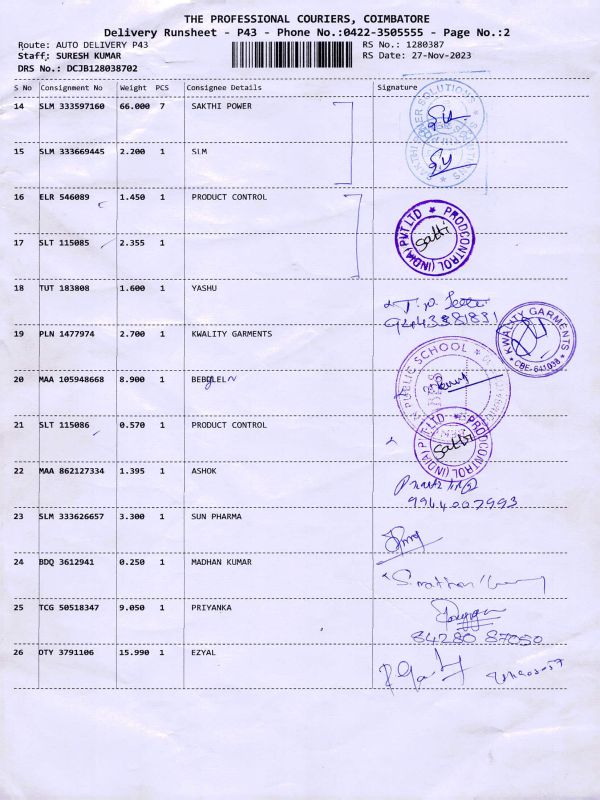 THE PROFESSIONAL COURIERS, COIMBATORE
Delivery Runsheet - P43 - Phone No.:0422-3505555 - Page No.:2
Route: AUTO DELIVERY P43 RS No.: 1280387
Staff: SURESH KUMAR RS Date: 27-Nov-2023
DRS No.: DCJB128038702
S No Consignment No Weight PCS Consignee Details Signature
14 SLM 333597160 66.000 7 SAKTHI POWER
15 SLM 333669445 2.200 1 SLM
16 ELR 546089 1.450 1 PRODUCT CONTROL
17 SLT 115085 2.355 1
PRODCONTROL (INDIA) PVT LTD
Sakthi
18 TUT 183808 1.600 1 YASHU
9443381831
19 PLN 1477974 2.700 1 KWALITY GARMENTS
KWALITY GARMENTS
CBE-641038
20 MAA 105948668 8.900 1
PUBLIC SCHOOL
21 SLT 115086 0.570 1 PRODUCT CONTROL
PRODCONTROL (INDIA) PVT LTD
Sakthi
22 MAA 862127334 1.395 1 ASHOK
9964007993
23 SLM 333626657 3.300 1 SUN PHARMA
24 BDQ 3612941 0.250 1 MADHAN KUMAR
25 TCG 50518347 9.050 1 PRIYANKA
84280 87050
26 OTY 3791106 15.990 1 EZYAL